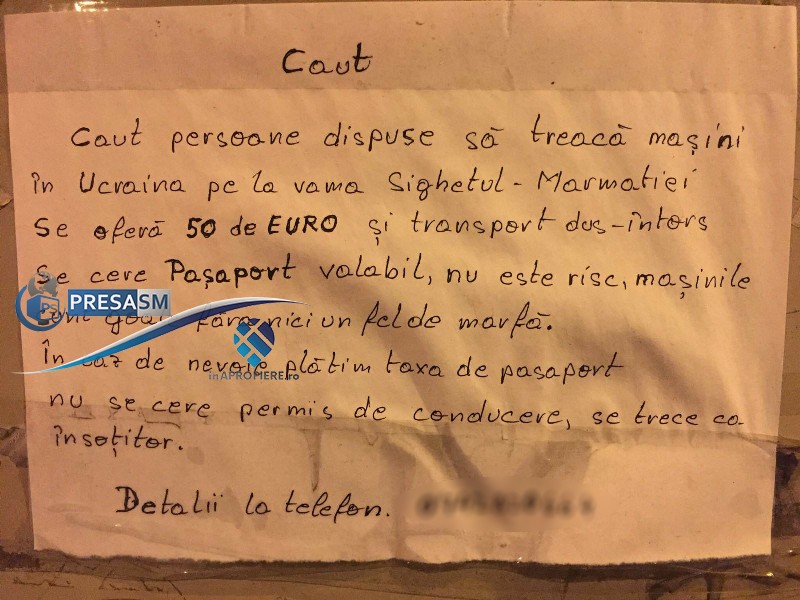 Caut
Caut persoane dispuse să treacă mașini
în Ucraina pe la vama Sighetul - Marmatiei
Se oferă 50 de EURO și transport dus-întors
Se cere Pașaport valabil, nu este risc, mașinile
PRESASM
sunt goale fără nici un fel de marfă.
În caz de nevoie plătim taxa de pasaport
inAPROPIERE.ro
nu se cere permis de conducere, se trece ca
însoțitor.
Detalii la telefon.